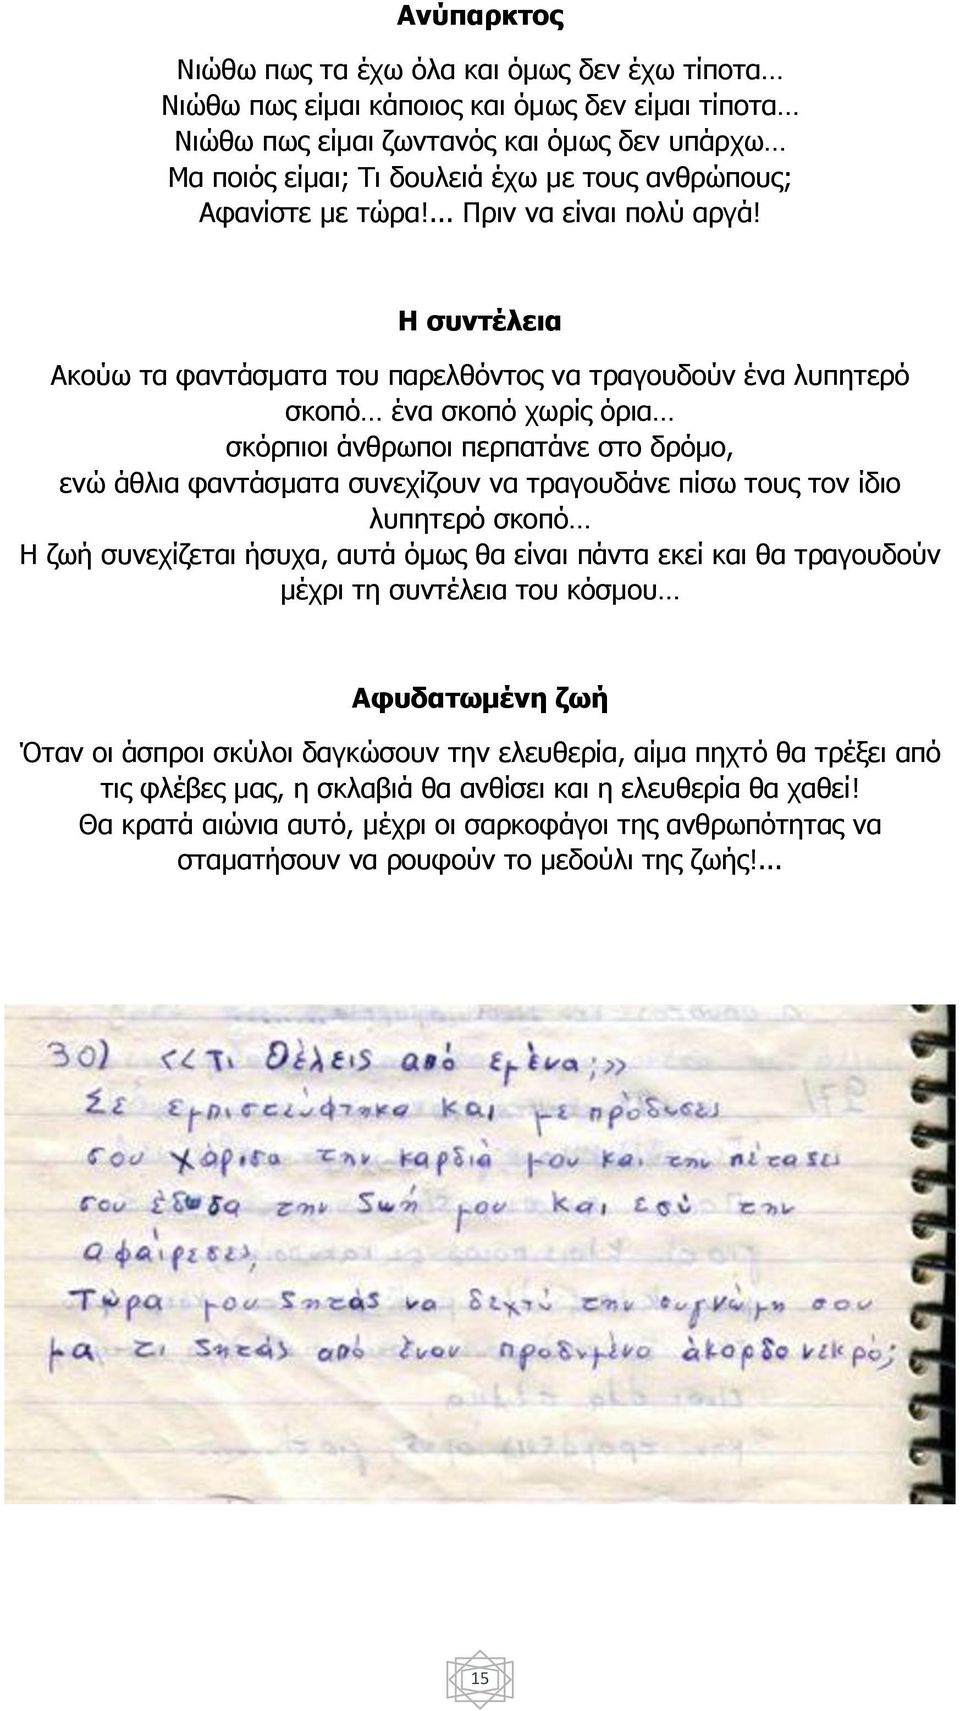 Ανύπαρκτος
Νιώθω πως τα έχω όλα και όμως δεν έχω τίποτα…
Νιώθω πως είμαι κάποιος και όμως δεν είμαι τίποτα…
Νιώθω πως είμαι ζωντανός και όμως δεν υπάρχω…
Μα ποιός είμαι; Τι δουλειά έχω με τους ανθρώπους;
Αφανίστε με τώρα!... Πριν να είναι πολύ αργά!
Η συντέλεια
Ακούω τα φαντάσματα του παρελθόντος να τραγουδούν ένα λυπητερό
σκοπό… ένα σκοπό χωρίς όρια…
σκόρπιοι άνθρωποι περπατάνε στο δρόμο,
ενώ άθλια φαντάσματα συνεχίζουν να τραγουδάνε πίσω τους τον ίδιο
λυπητερό σκοπό…
Η ζωή συνεχίζεται ήσυχα, αυτά όμως θα είναι πάντα εκεί και θα τραγουδούν
μέχρι τη συντέλεια του κόσμου…
Αφυδατωμένη ζωή
Όταν οι άσπροι σκύλοι δαγκώσουν την ελευθερία, αίμα πηχτό θα τρέξει από
τις φλέβες μας, η σκλαβιά θα ανθίσει και η ελευθερία θα χαθεί!
Θα κρατά αιώνια αυτό, μέχρι οι σαρκοφάγοι της ανθρωπότητας να
σταματήσουν να ρουφούν το μεδούλι της ζωής!...
30) <<Τι θέλεις από εμένα;>>
Σε εμπιστεύφτηκα και με πρόδωσες
σου χάρισα την καρδιά μου και την πέταξες
σου έδωσα την ζωή μου και εσύ την
αφαίρεσες,
Τώρα μου ζητάς να δεχτώ την συγνώμη σου
μα τι ζητάς από έναν προδομένο άκαρδο νεκρό;
15